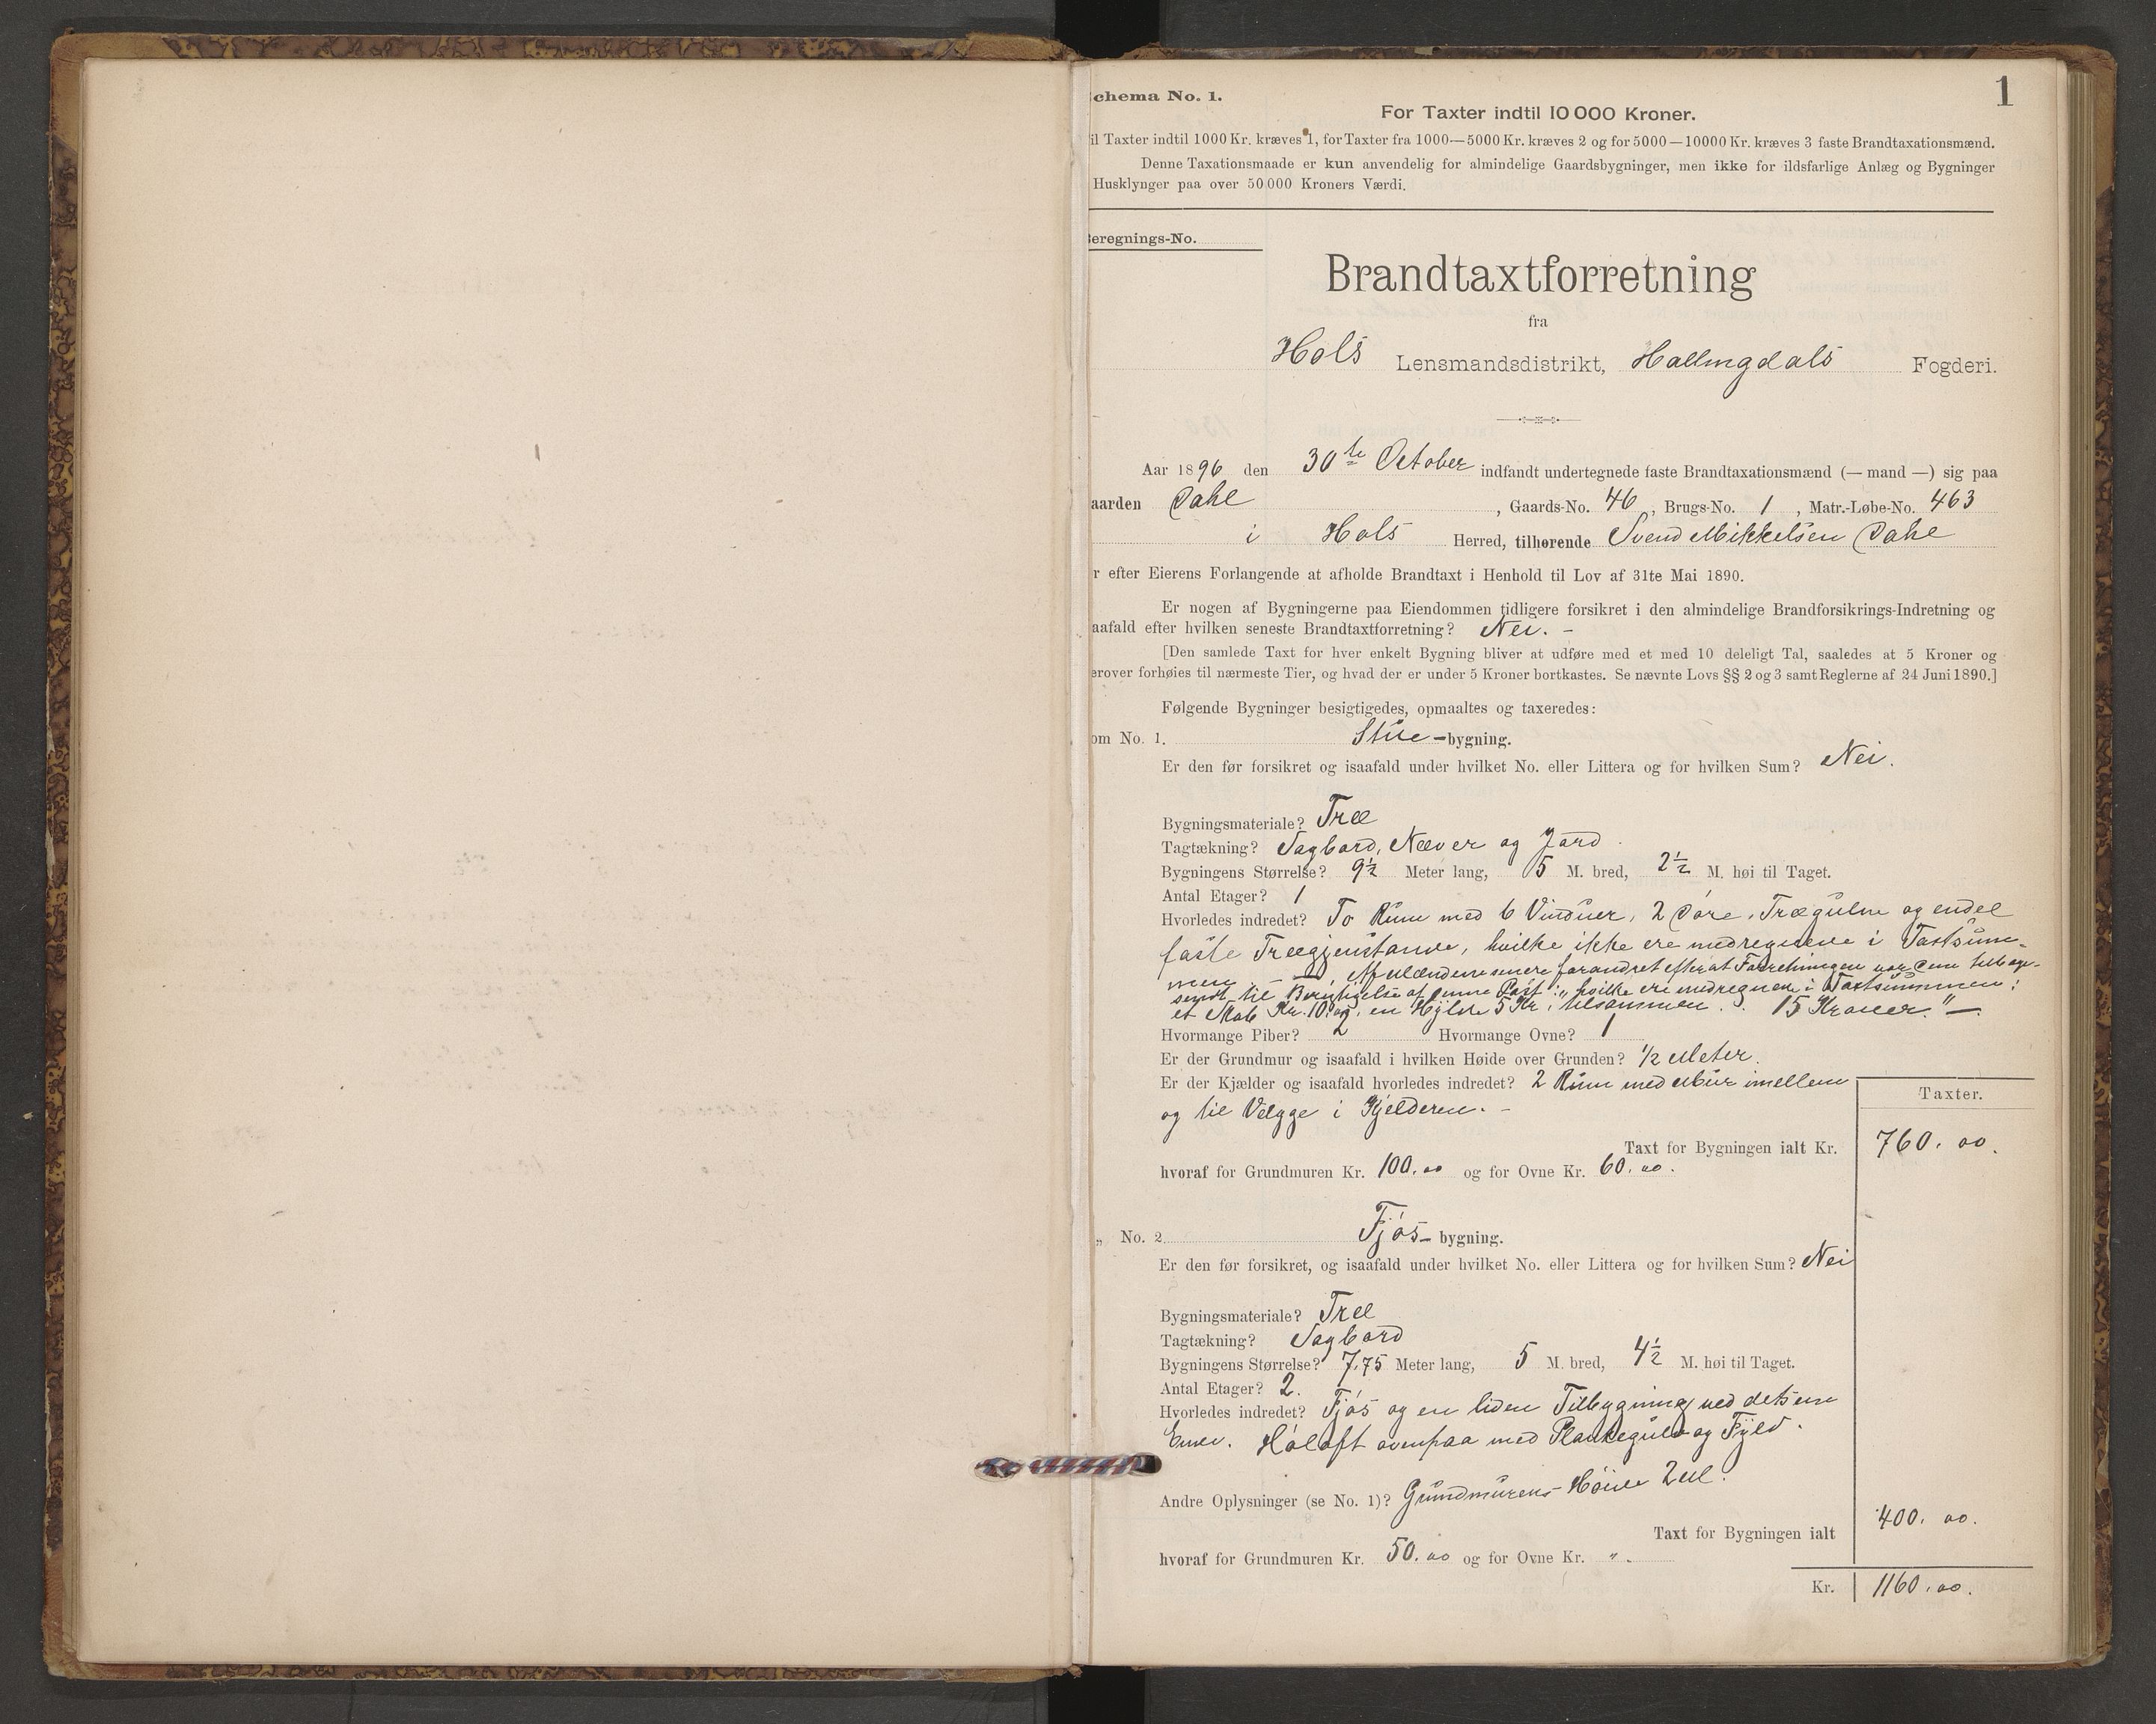 1
chema No. 1.
For Taxter indtil 10 000 Kroner.
il Taxter indtil 1000 Kr. kræves 1, for Taxter fra 1000—5000 Kr. kræves 2 og for 5000—10000 Kr. kræves 3 faste Brandtaxationsmænd.
Denne Taxationsmaade er kun anvendelig for almindelige Gaardsbygninger, men ikke for ildsfarlige Anlæg og Bygninger
Husklynger paa over 50 000 Kroners Værdi.
Beregnings-No.
Brandtaxtforretning
fra
Hols Lensmandsdistrikt, Hallingdals Fogderi.
Aar 1896 den 30te October indfandt undertegnede faste Brandtaxationsmænd (— mand —) sig paa
aarden Dahl , Gaards-No. 46 , Brugs-No. 1 , Matr.-Løbe-No. 463
i Hols Herred, tilhørende Svend Mikkelsen Dahl
r efter Eierens Forlangende at afholde Brandtaxt i Henhold til Lov af 31te Mai 1890.
Er nogen af Bygningerne paa Eiendommen tidligere forsikret i den almindelige Brandforsikrings-Indretning og
aafald efter hvilken seneste Brandtaxtforretning? Nei. -
[Den samlede Taxt for hver enkelt Bygning bliver at udføre med et med 10 deleligt Tal, saaledes at 5 Kroner og
erover forhøies til nærmeste Tier, og hvad der er under 5 Kroner bortkastes. Se nævnte Lovs §§ 2 og 3 samt Reglerne af 24 Juni 1890.]
Følgende Bygninger besigtigedes, opmaaltes og taxeredes:
om No. 1. Stue-bygning.
Er den før forsikret og isaafald under hvilket No. eller Littera og for hvilken Sum? Nei.
Bygningsmateriale? Træ
Tagtækning? Sagbord, Næver og Jord.
Bygningens Størrelse? 9½ Meter lang, 5 M. bred, 2½ M. høi til Taget.
Antal Etager? 1
Hvorledes indredet? To Rum med 6 Vinduer, 2 Døre, Trægulve og endel
faste Trægjenstande, hvilke ikke ere medregnede i Taxtsum-
men — Af Mændene senere forandret efterat Forretningen var dem tilbage-
sendt til Berigtigelse af denne Post: "hvilke ere medregnede i Taxtsummen:
et Skab Kr. 10 og en Hylde 5 Kr, tilsammen 15 Kroner." —
Hvormange Piber? 2 Hvormange Ovne? 1
Er der Grundmur og isaafald i hvilken Høide over Grunden? ½ Meter.
Er der Kjælder og isaafald hvorledes indredet? 2 Rum med Mur imellem
og til Vægge i Kjelderen. -
Taxter.
Taxt for Bygningen ialt Kr. 760. 00.
hvoraf for Grundmuren Kr. 100. 00 og for Ovne Kr. 60. 00.
„ No. 2 Fjøs- bygning.
Er den før forsikret, og isaafald under hvilket No. eller Littera og for hvilken Sum? Nei
Bygningsmateriale? Træ
Tagtækning? Sagbord
Bygningens Størrelse? 7,75 Meter lang, 5 M. bred, 4½ M. høi til Taget.
Antal Etager? 2.
Hvorledes indredet? Fjøs og en liden Tilbygning ved dets ene
Ende. Høloft ovenpaa med Plankegulv og Fjeld.
Andre Oplysninger (se No. 1)? Grundmurens Høide 2 M.
Taxt for Bygningen ialt 400. 00.
hvoraf for Grundmuren Kr. 50. 00 og for Ovne Kr. ".
Kr. 1160. 00.